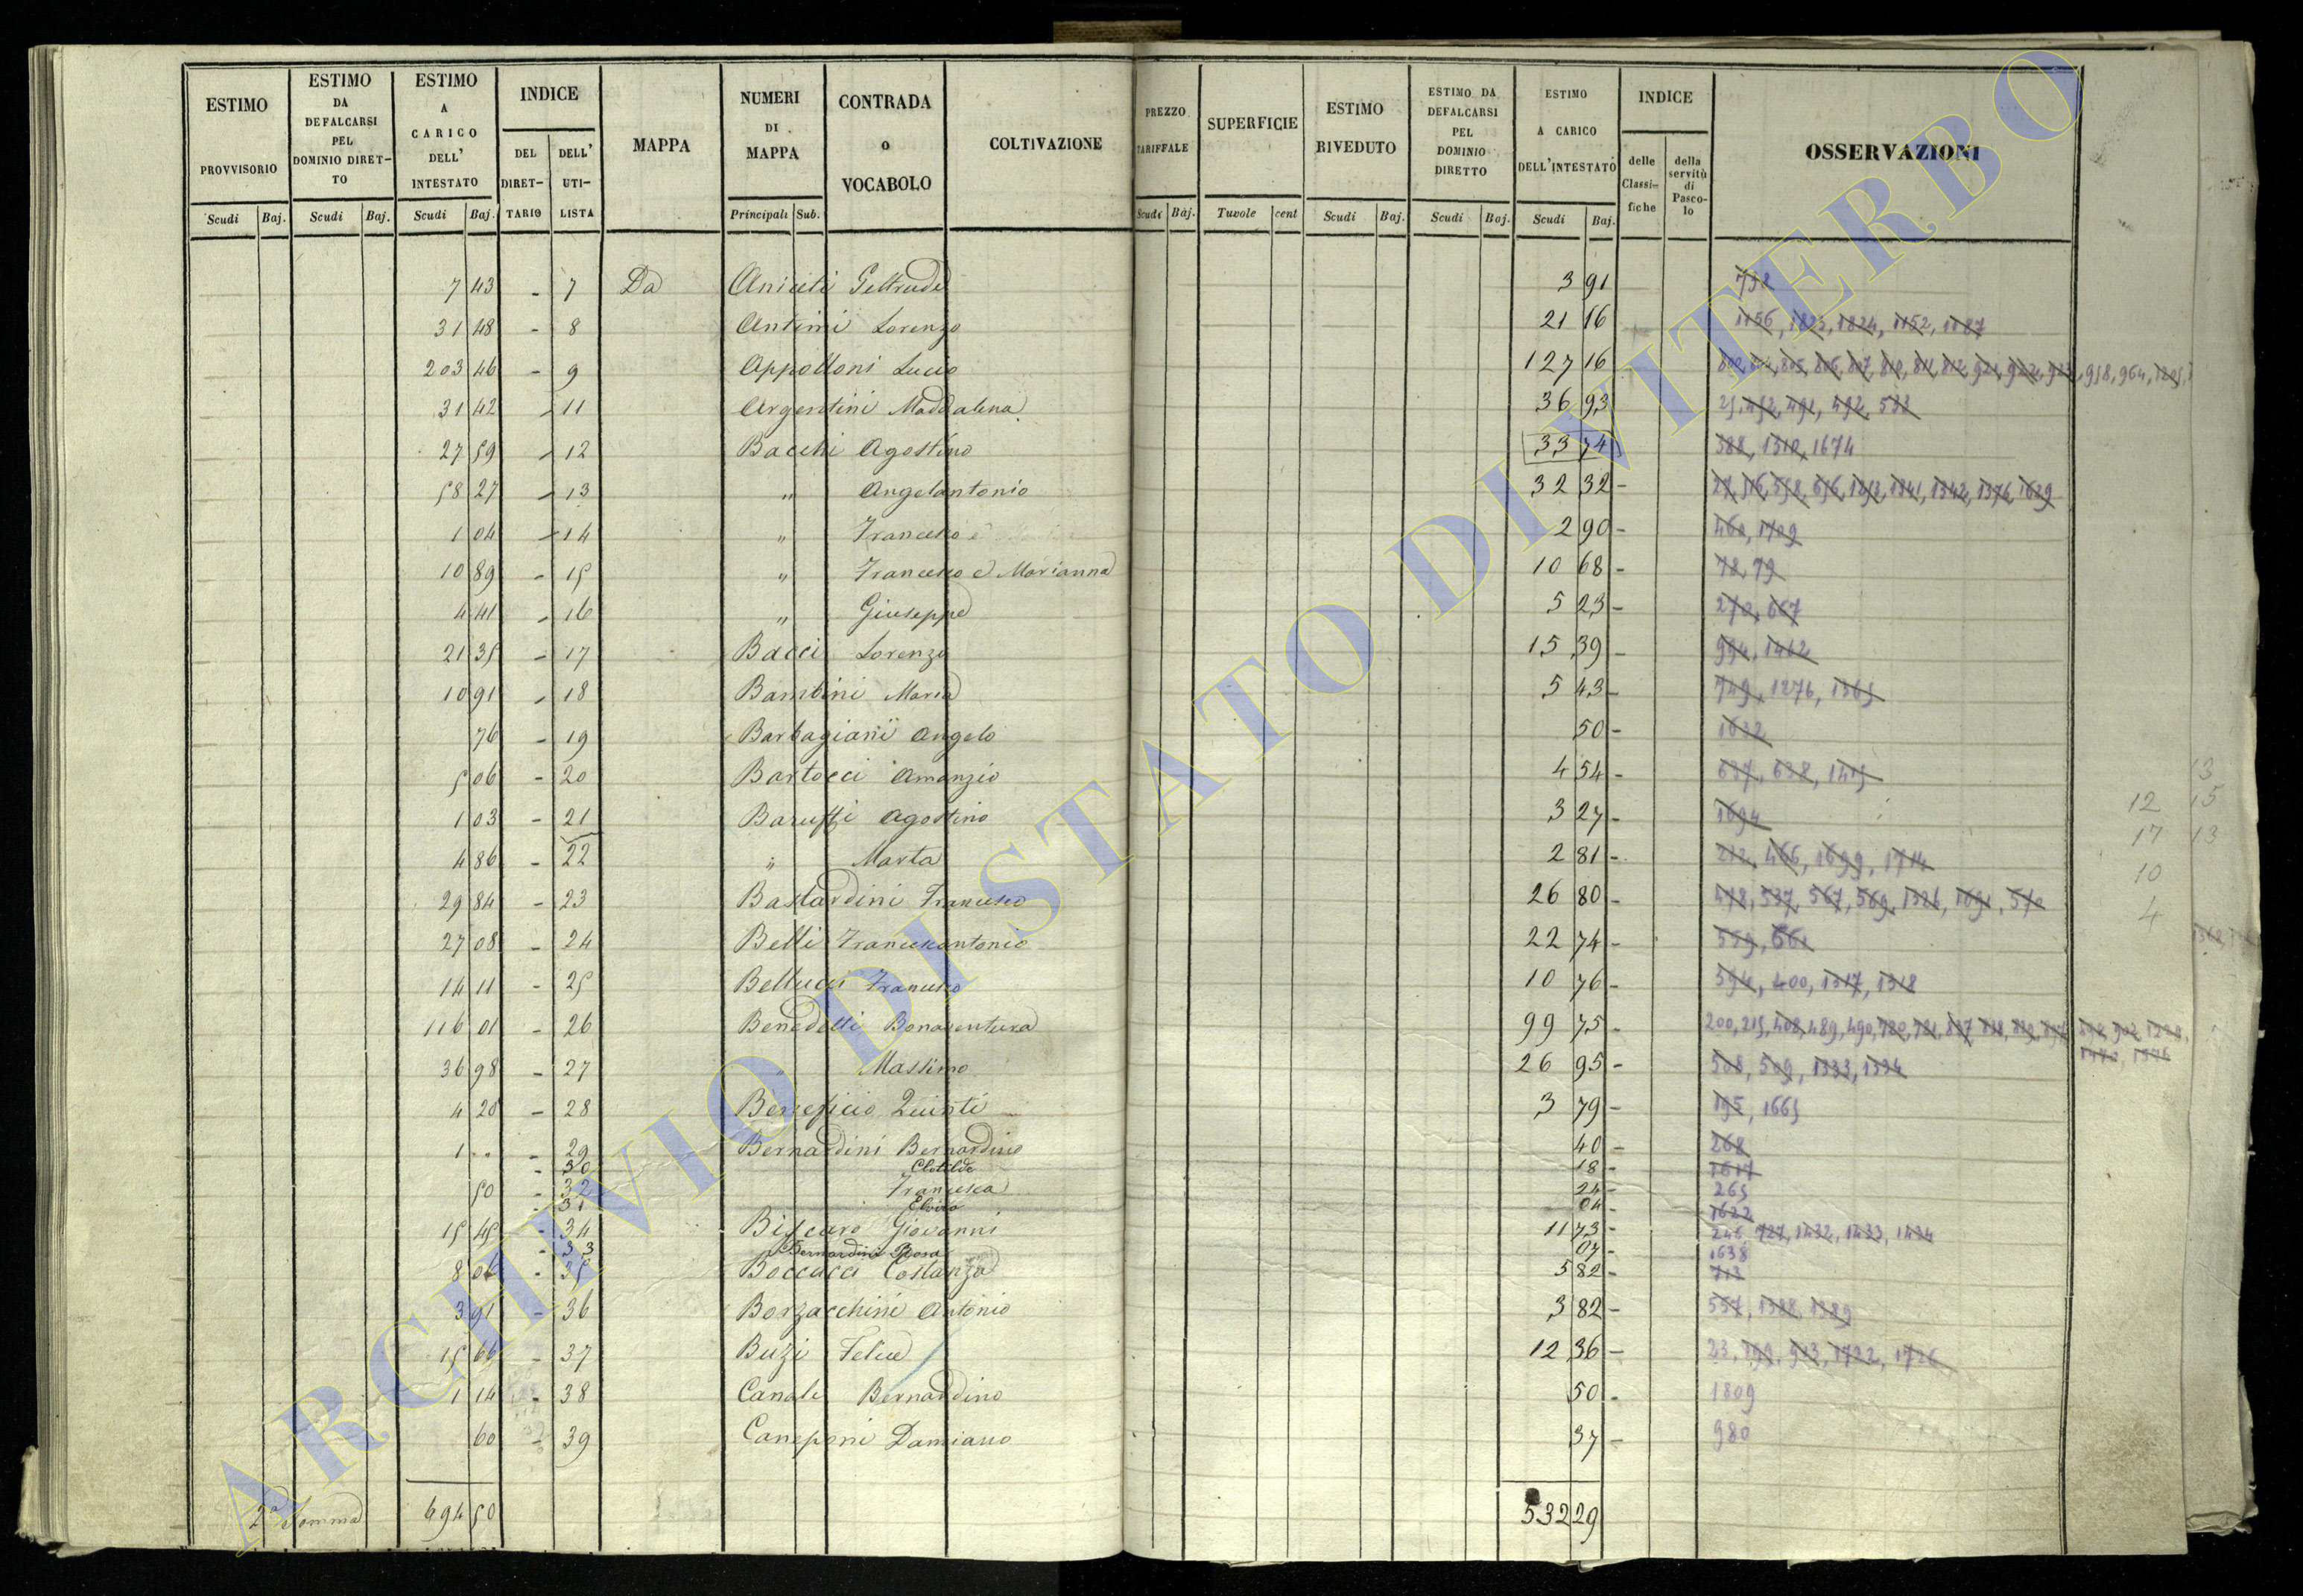 ESTIMO PROVVISORIO Scudi Baj.
ESTIMO DA DEFALCARSI PEL DOMINIO DIRET-TO Scudi Baj.
ESTIMO A CARICO DELL' INTESTATO Scudi Baj.
INDICE DEL DIRET-TARIO DELL' UTI-LISTA
MAPPA
NUMERI DI MAPPA Principali Sub.
CONTRADA o VOCABOLO
COLTIVAZIONE
PREZZO TARIFFALE Scudi Baj.
SUPERFICIE Tavole cent
ESTIMO RIVEDUTO Scudi Baj.
ESTIMO DA DEFALCARSI PEL DOMINIO DIRETTO Scudi Baj.
ESTIMO A CARICO DELL'INTESTATO Scudi Baj.
INDICE delle Classi-fiche della servitù di Pasco-lo
OSSERVAZIONI
7 43 - 7 Da Aniceti Geltrude 3 91 738
31 48 - 8 Antimi Lorenzo 21 16 1156, 1823, 1824, 1152, 1187
203 46 - 9 Appolloni Lucio 127 16 805, 806, 807, 810, 811, 812, 958, 964
31 42 - 11 Argentini Maddalena 36 93 491, 492, 533
27 59 - 12 Bacchi Agostino 33 74 388, 1310, 1674
58 27 - 13 " Angelantonio 32 32 - 1341, 1342, 1376, 1629
1 04 - 14 " Francesco e 2 90 - 460, 1709
10 89 - 15 " Francesco e Marianna 10 68 - 78, 79
4 41 - 16 " Giuseppe 5 23 - 667
21 35 - 17 Bacci Lorenzo 15 39 - 994, 1462
10 91 - 18 Bambini Maria 5 43 - 749, 1276, 1365
76 - 19 Barbagiani Angelo 50 - 1632
5 06 - 20 Bartocci Amanzio 4 54 - 637, 638, 1415
1 03 - 21 Baruffi Agostino 3 27 - 1694
4 86 - 22 " Marta 2 81 - 212, 466, 1699, 1714
29 84 - 23 Bastardini Francesco 26 80 - 478, 537, 567, 569, 1326, 1691, 570
27 08 - 24 Belli Francescantonio 22 74 - 559, 661
14 11 - 25 Bellucci Francesco 10 76 - 394, 400, 1317, 1318
116 01 - 26 Benedetti Bonaventura 99 75 - 200, 215, 408, 489, 490, 720, 721
36 98 - 27 " Massimo 26 95 - 508, 509, 1333, 1334
4 20 - 28 Beneficio Quinti 3 79 - 195, 1665
1 .. - 29 Bernardini Bernardino 40 - 268
- 30 Clotilde 18 - 1617
50 - 32 Francesca 24 - 265
- 31 Elvira 04 - 1622
15 45 - 34 Biscaro Giovanni 11 73 - 246, 727, 1432, 1433, 1434
- 33 Bernardini Rosa 07 - 1638
8 06 - 35 Boccacci Costanza 5 82 - 713
3 91 - 36 Borzacchini Antonio 3 82 - 557, 1388, 1389
15 66 - 37 Buzi Felice 12 36 - 23, 199, 913, 1722, 1726
1 14 - 38 Canale Bernardino 50 - 1809
60 - 39 Caneponi Damiano 37 - 980
2ª Somma 694 50 532 29
13
12 15
17 13
10
4
ARCHIVIO DI STATO DI VITERBO